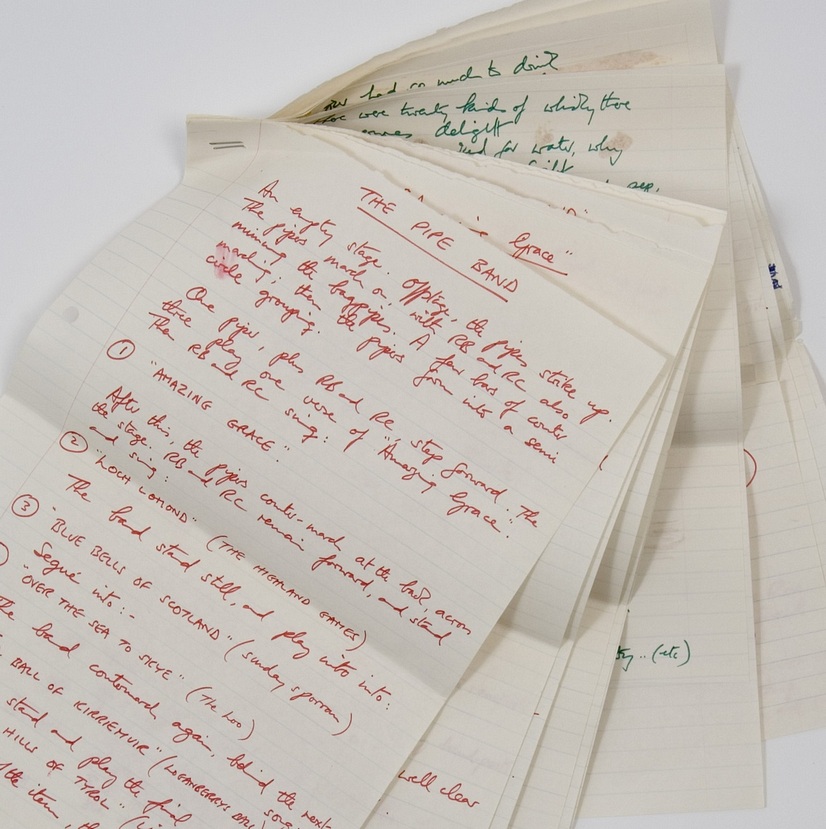 had so much to drink
were twenty kinds of whisky there
delight
for water, why
Grace"
THE PIPE BAND
An empty stage. Offstage, the pipes strike up.
The pipers march on, with RB and RC also
miming the bagpipes. A few bars of counter
marching; then the pipers form into a semi
circle grouping.
One piper, plus RB and RC step forward. The
three play one verse of "Amazing Grace".
Then RB and RC sing:
① "AMAZING GRACE".
After this, the pipers counter-march at the back, across
the stage. RB and RC remain forward, and stand
and sing:
② "LOCH LOMOND" (THE HIGHLAND GAMES)
The band stand still, and play intro into:
③ "BLUE BELLS OF SCOTLAND" (Sunday sporran)
Segue into:-
"OVER THE SEA TO SKYE" (The Loo)
The band countermarch again, behind the next
song
BALL OF KIRRIEMUIR" (
stand and play the final
HILLS OF TYROL"
the item, the
well clear
(etc)